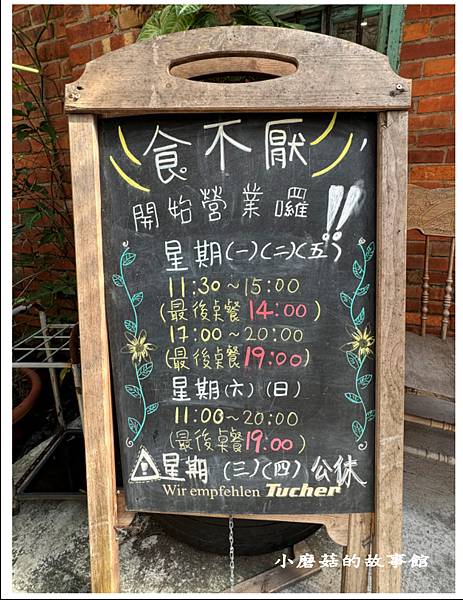 食不厭
開始營業囉!!
星期(一)(二)(五)
11:30~15:00
(最後桌餐 14:00)
17:00~20:00
(最後桌餐 19:00)
星期(六)(日)
11:00~20:00
(最後桌餐 19:00)
⚠星期(三)(四)公休
Wir empfehlen Tucher
小磨菇的故事館